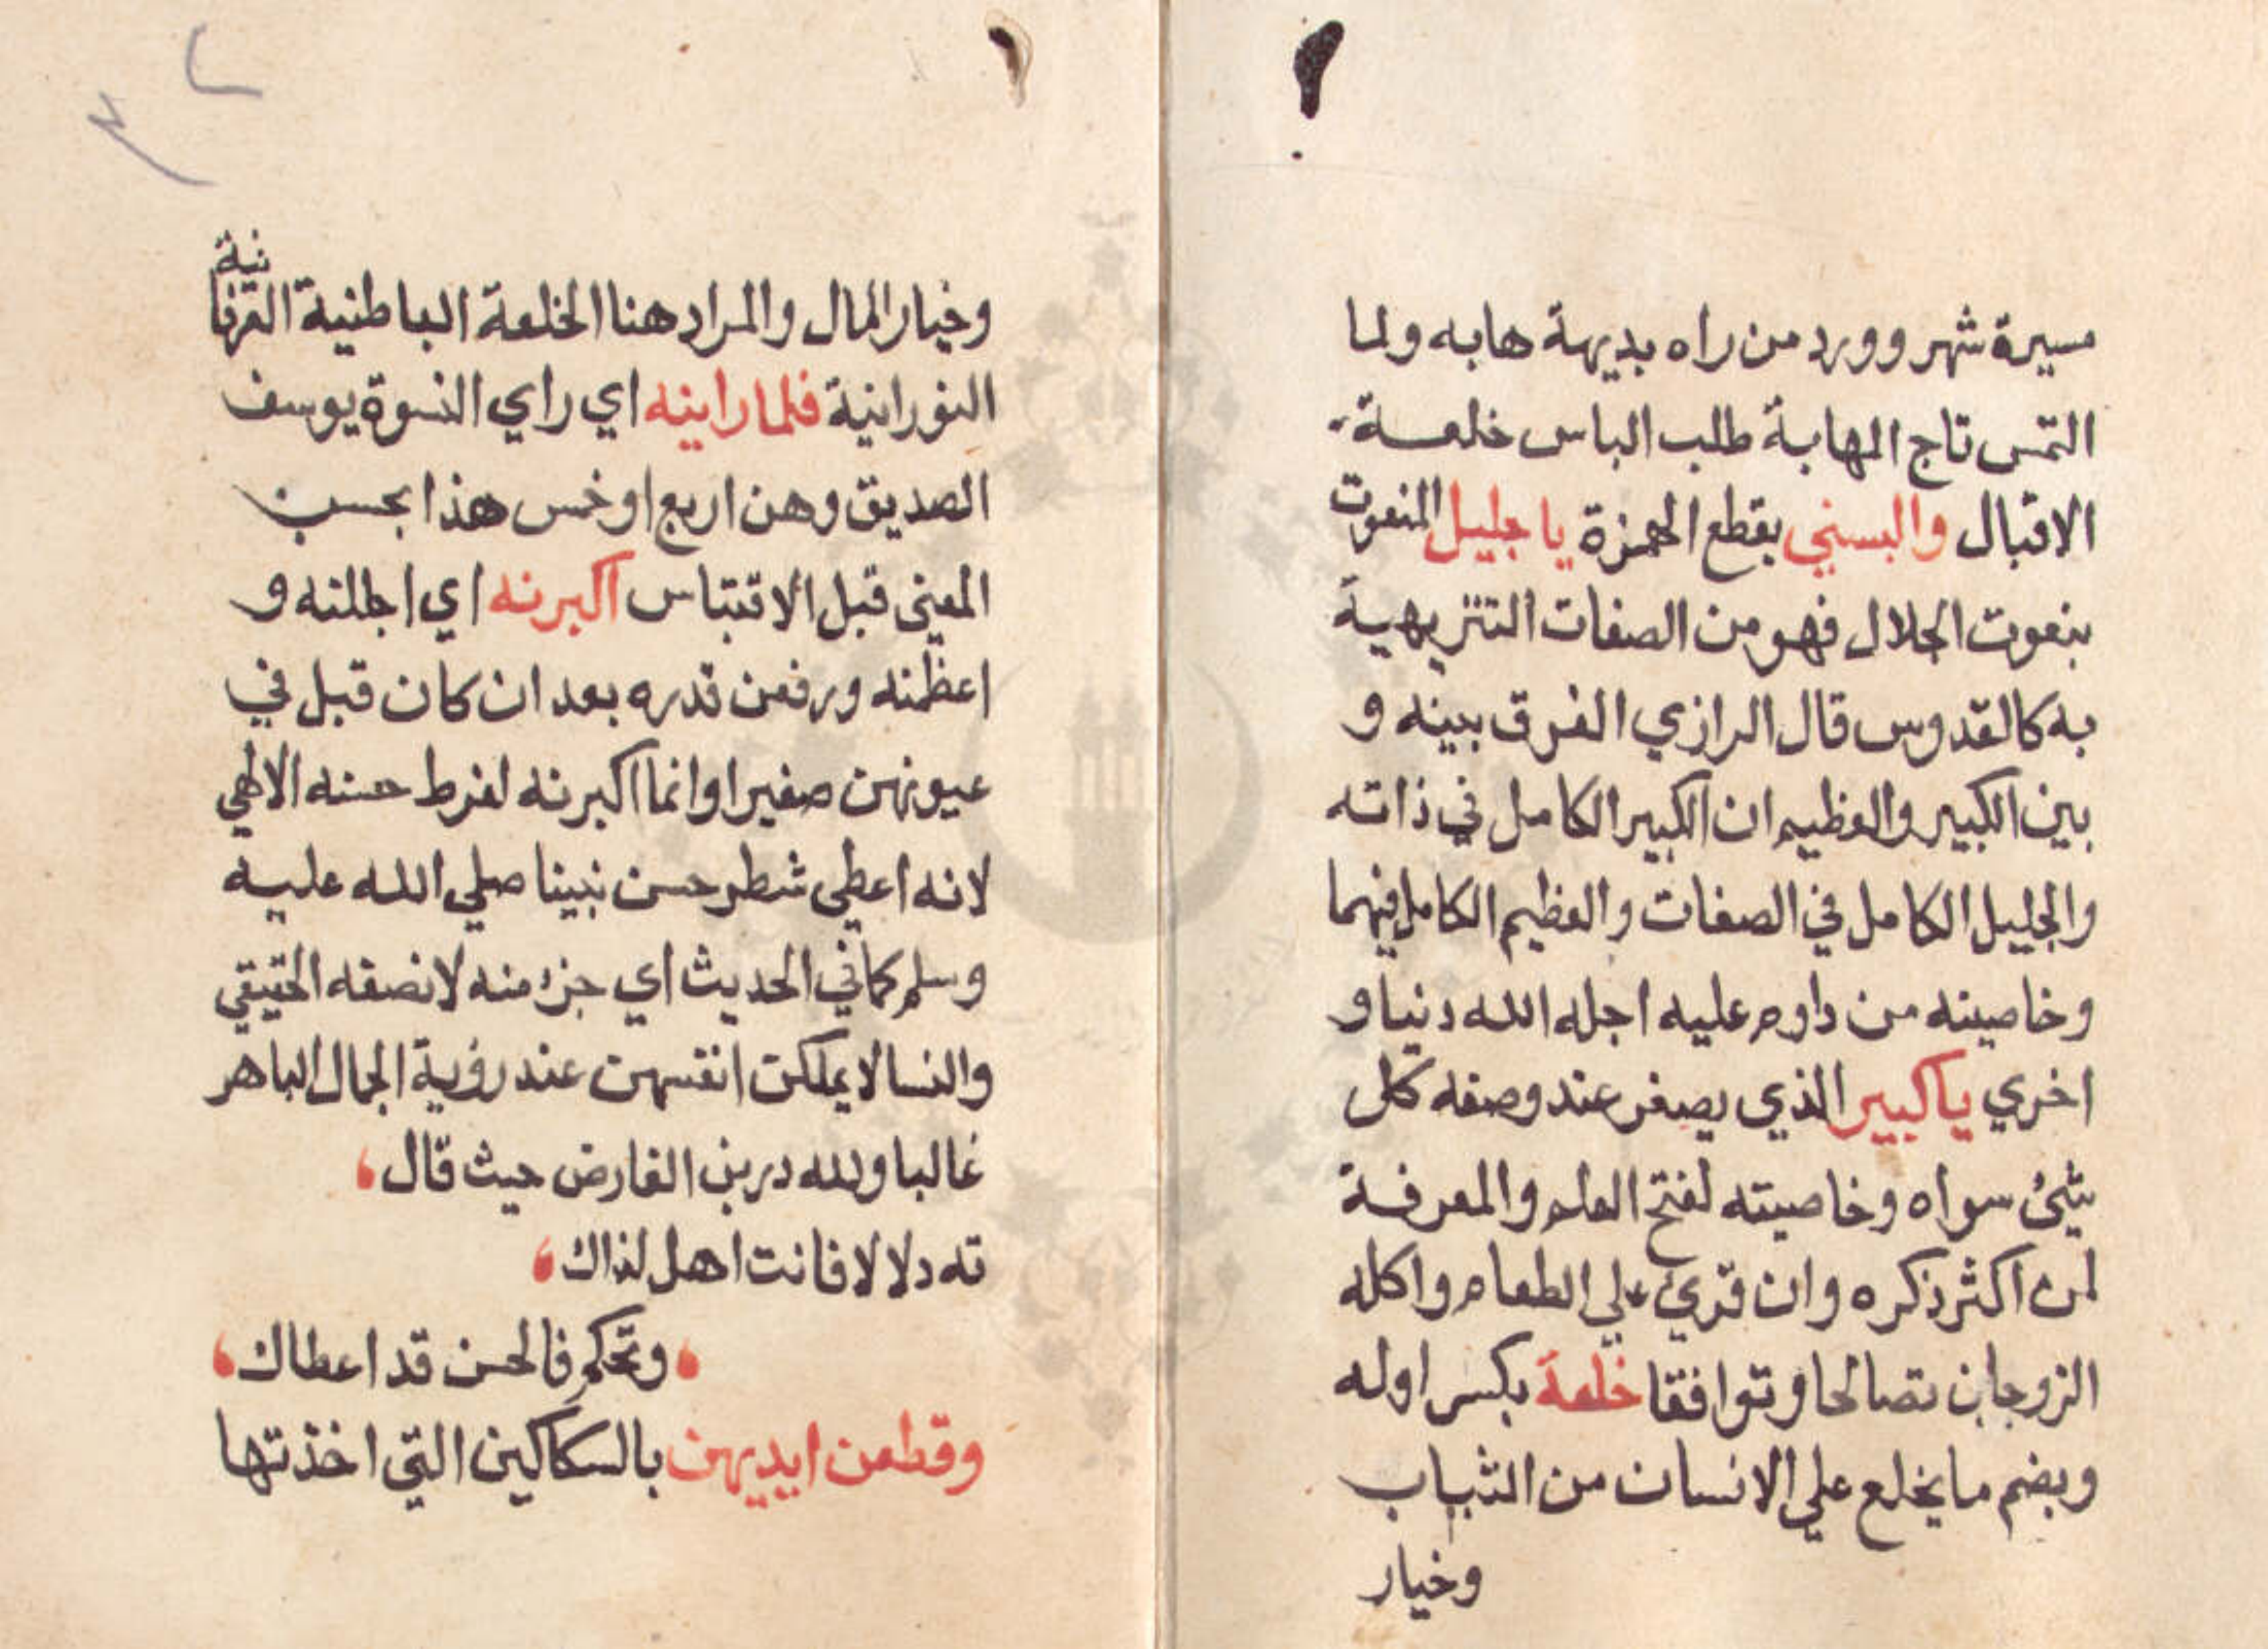 مسيرة شهر وورد من راه بديهة هابه ولما
التمس تاج المهابة طلب الباس خلعة
الاقبال والبسني بقطع الهمزة يا جليل المنعوت
بنعوت الجلال فهو من الصفات التنزيهية
به كالقدوس قال الرازي الفرق بينه و
بين الكبير والعظيم ان الكبير الكامل في ذاته
والجليل الكامل في الصفات والعظيم الكامل فيهما
وخاصيته من داوم عليه اجله الله دنيا و
اخري يا كبير الذي يصغر عند وصفه كل
شيئ سواه وخاصيته لفتح العلم والمعرفة
لمن اكثر ذكره وان قرئ علي الطعام واكله
الزوجان تصالحا وتوافقا خلعة بكسر اوله
وبضم ما يخلع علي الانسان من الثياب
وخيار
وخيار المال والمراد هنا الخلعة الباطنية العرفانية
النورانية فلما راينه اي راي النسوة يوسف
الصديق وهن اربع او خمس هذا بحسب
المعني قبل الاقتباس اكبرنه اي اجللنه و
اعظمنه ورفعن قدره بعد ان كان قبل في
عيونهن صغيرا وانما اكبرنه لفرط حسنه الالهي
لانه اعطي شطر حسن نبينا صلي الله عليه
وسلم كما في الحديث اي جزء منه لا نصفه الحقيقي
والنسا لا يملكن انفسهن عند رؤية الجمال الباهر
غالبا ولله در بن الفارض حيث قال
ته دلالا فانت اهل لذاك
وتحكم فالحسن قد اعطاك
وقطعن ايديهن بالسكاكين التي اخذتها